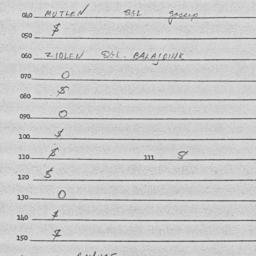 040 MUTLEN DSL group
050 $
060 ZIDLEN DSL. BALAJDINK
070 O
080 $
090 O
100 $
110 $ 111 8
120 $
130 O
140 $
150 $